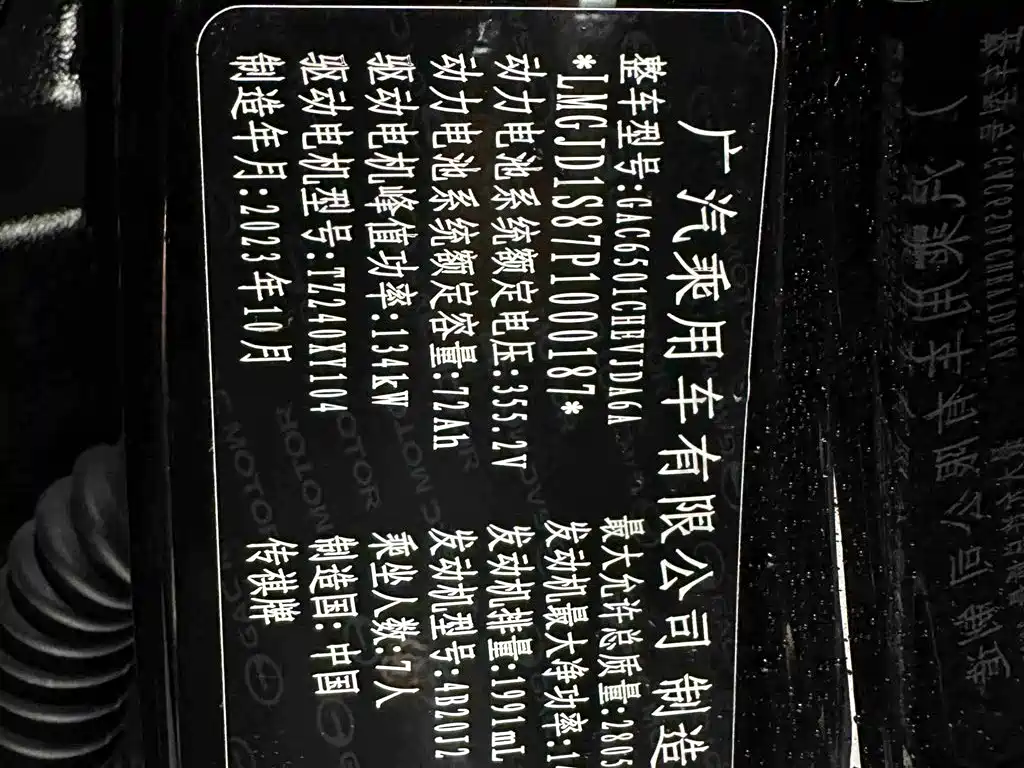 广汽乘用车有限公司 制造
整车型号:GAC6501CHEVDA6A
最大允许总质量:2805
*LMGJD1S87P1000187*
发动机最大净功率:1
动力电池系统额定电压:355.2V
发动机排量:1991mL
动力电池系统额定容量:72Ah
发动机型号:4B2012
驱动电机峰值功率:134kW
乘坐人数:7人
驱动电机型号:TZ240XY104
制造国:中国
制造年月:2023年10月
传祺牌